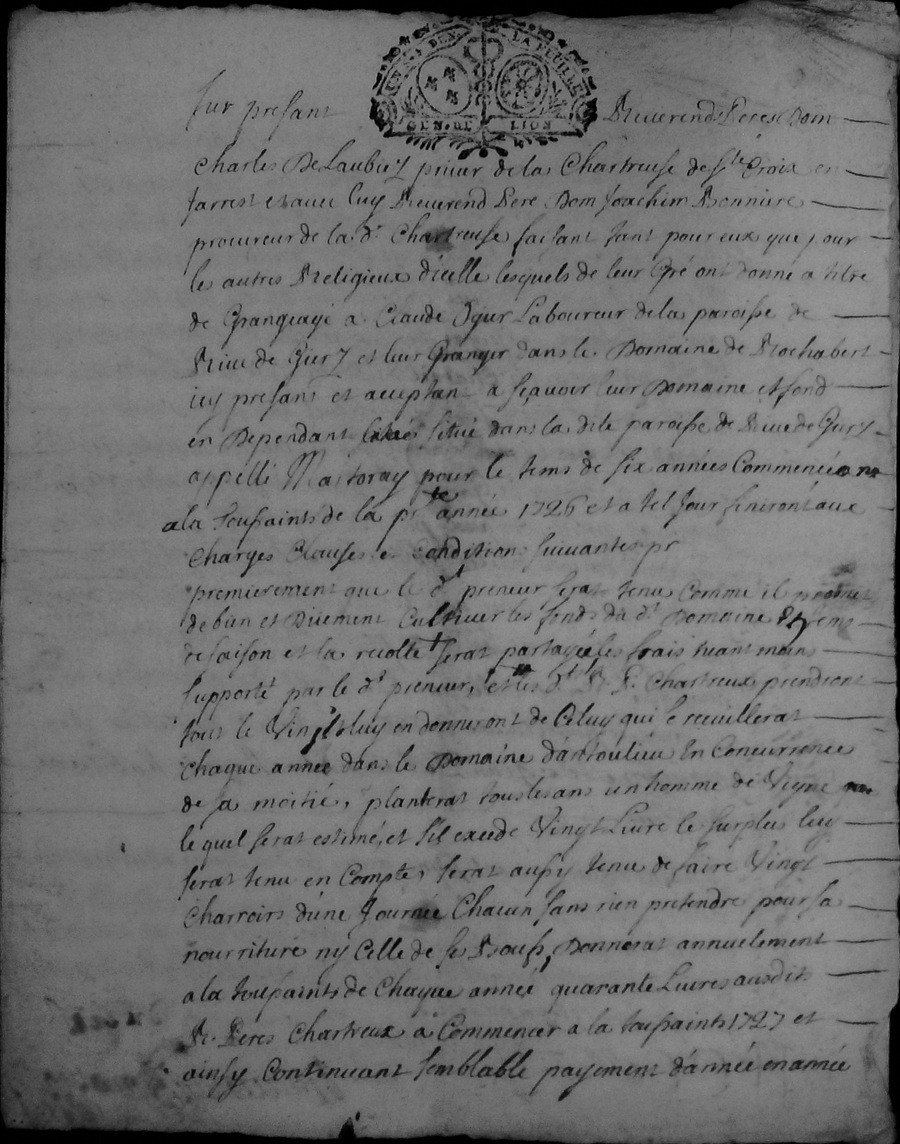 GEN. DE LION
fur presant Reuerend Peres Dom
Charles De Laubiez prieur de la Chartreuse de Ste Croix en
Jarrest et auec luy Reuerend Pere Dom Joachim Bonniere
procureur de la dt Chartreuse faisant tant pour eux que pour
les autres Religieux d'icelle lesquels de leur Gré ont donné a titre
de Grangeage a Claude Ogur Laboureur de la paroisse de
Riue de Giez et leur Granger dans le Domaine de Rochabert
icy presant et acceptant a sçauoir leur Domaine et fond
en Dependant situé dans la dite paroisse de Riue de Giez
appellé Martoray pour le tems de six années Commencée
a la toussaints de la prte année 1726 et a tel Jour finiront aux
Charges Clauses et conditions suiuantes
premierement que le dt preneur serat tenu Comme il promet
de bien et Duement Cultiuer les fonds du dt Domaine tems
de saison et la recolte serat partagée les frais
supporté par le dt preneur, et les dt R. P. Chartreux prendront
tout le Vin luy en donneront de Celuy qui se receuillerat
chaque année dans le Domaine En Concurrence
de sa moitié, planterat tous les ans un homme de Vigne
le quel serat estimé, et s'il excede Vingt Liure le surplus luy
serat tenu en Compte, serat aussy tenu de faire Vingt
Charroirs d'une Journée Chacun sans rien pretendre pour sa
nourriture ny Celle de ses Bœufs, Donnerat annuelement
a la toussaints de Chaque année quarante Liures ausdits
R. Peres Chartreux a Commencer a la toussaints 1727 et
ainsy Continuant semblable payement d'année en année